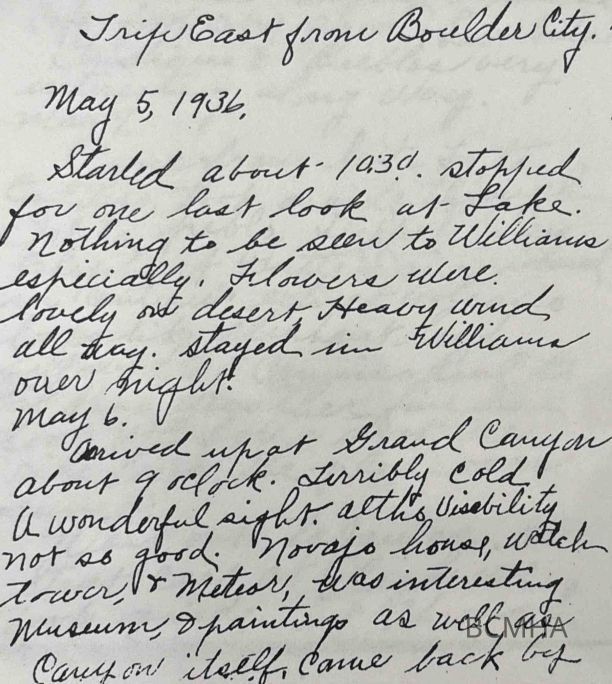 Trip East from Boulder City.
May 5, 1936.
Started about 10:30. stopped
for one last look at Lake.
Nothing to be seen to Williams
especially. Flowers were
lovely on desert. Heavy wind
all way. stayed in Williams
over night.
May 6.
Arrived up at Grand Canyon
about 9 oclock. Terribly cold
A wonderful sight. altho Visebility
not so good. Novajo house, watch
tower, & Meteor, was interesting
Museum, & paintings as well as
Canyon itself. Came back by
BCMHA